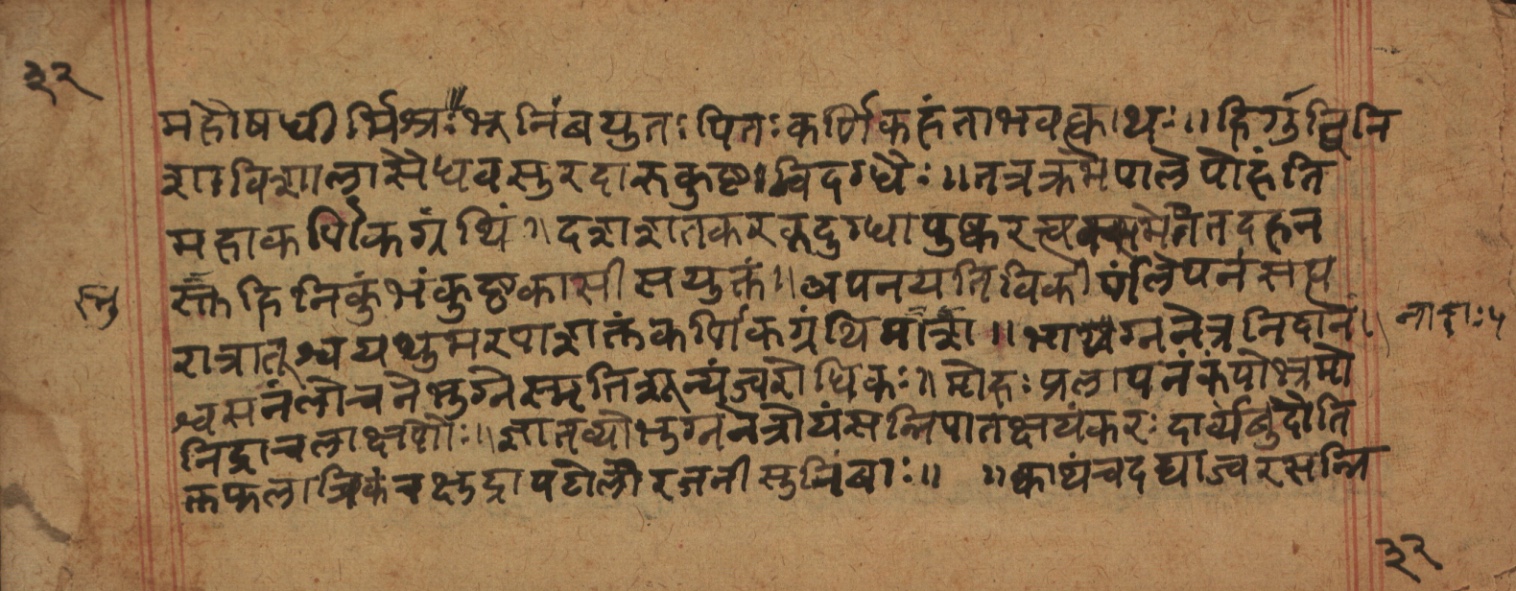 ३२
महौषधीर्मिश्रः भूनिंबयुतः पितः कर्णिकहंताभवत्काथः ॥ हिर्गुद्विनि
शा विशालासैधवसुरदारुकुष्टा विदग्धैः ॥ तत्रक्रमैपालेपौहंति
महाकर्णिकग्रंथिं ॥ दशशतकर दुग्धापुष्करत्वक् तदहन
हिनिकुंभंकुष्ठकासीसयुक्तं ॥ अपनयतिविकी लेपनंसप्त
रात्रात् श्वयथुमरणशक्तंकर्णिकग्रंथि ॥ ग्ननेत्रनिदानं ॥
श्वसनंलोचनेभुग्नेस्मृतिशून्यंज्वरोधिकः ॥ मोहः प्रलापनंकंपोभ्रमो
निद्राचलाक्षणोः ॥ ज्ञातव्योभुग्ननेत्रोयंसन्निपातंक्षयंकरः दार्व्यंबुदोति
क्तफलात्रिकंचक्षुद्रापटोलीरजनीसुनिंबाः ॥ ॥ क्वाथंचदद्याज्वरसन्नि
३२